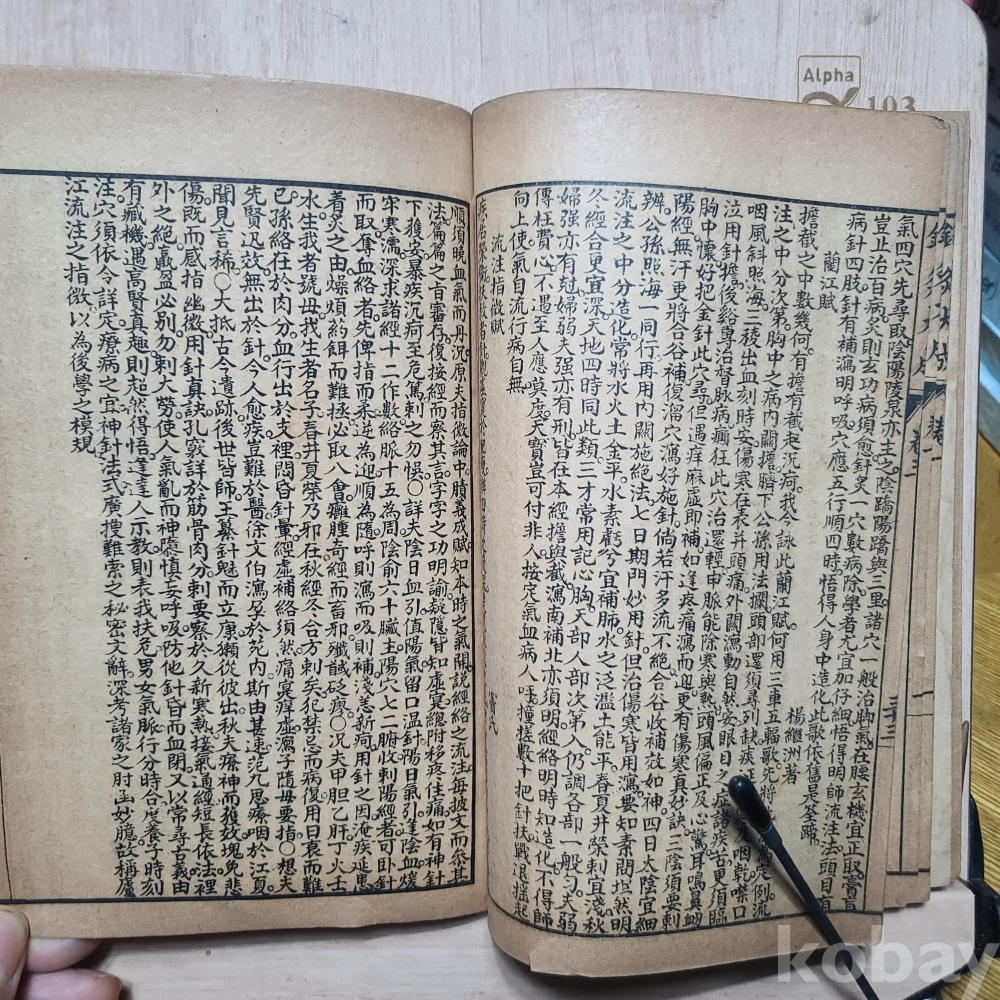 Alpha
103
氣四穴先尋取陰陽陵泉亦主之陰蹻陽蹻與三里諸穴一般治脚氣在腰玄機宜正取膏肓
豈止治百病灸則玄功病須愈針灸一穴數病除學者尤宜加仔細悟得明師流注法頭目有
病針四肢針有補瀉明呼吸穴應五行順四時悟得人身中造化此歌依舊是筌蹄
蘭江賦
楊繼洲著
擔截之中數幾何有擔有截起沉疴我今詠此蘭江賦何用三車五輻歌先將
例流
注之中分次第胸中之病內關擔臍下公孫用法攔頭部還須尋列缺痰
咽乾噤口
咽風斜照海三稜出血刻時安傷寒在表并頭痛外關瀉動自然安眼目之症諸疾苦更須臨
泣用針擔後谿專治督脈病癲狂此穴治還輕申脈能除寒與熱頭風偏正及心驚耳鳴鼻衄
胸中懷好把金針此穴尋但遇痒麻虛即補如逢疼痛瀉而迎更有傷寒真妙訣三陰須要刺
陽經無汗更將合谷補復溜穴瀉好施針倘若汗多流不絕合谷收補效如神四日太陰宜細
辨公孫照海一同行再用內關施絶法七日期門妙用針但治傷寒皆用瀉要知素問坦然明
流注之中分造化常將水火土金平水素虧兮宜補肺水之泛濫土能平春夏井榮刺宜淺秋
冬經合更宜深天地四時同此類三才常用記心胸天部人部次第入仍調各部一般勻夫弱
婦强亦有尅婦弱夫强亦有刑皆在本經擔與截瀉南補北亦須明經絡明時知造化不得師
傳枉費心不遇至人應莫度天寶豈可付非人按定氣血病人呼撞搓數十把針扶戰退搖起
向上使氣自流行病自無
流注指微賦
竇氏
順須曉血氣而升沉原夫指微論中賾義成賦知本時之氣關說經絡之流注每披文而參其
法篇篇之旨審存復按經而察其言字字之功明諭疑隱皆知虛實總附移疼住痛如有神針
下獲安暴疾沉疴至危篤刺之勿悞○詳夫陰日血引值陽氣留口温針陽日氣引逢陰血煖
牢寒濡深求諸經十二作數絡脈十五為周陰俞六十臟主陽穴七二腑收刺陽經者可卧針
而取奪血絡者先俾指而柔逆為迎順為隨呼則瀉而吸則補淺恙新疴用針之因淹疾延患
着灸之由燥煩藥餌而難拯必取八會癰腫奇經而畜邪殱馘砭瘳○况夫甲胆乙肝丁火壬
水生我者號母我生者名子春井夏榮乃邪在秋經冬合方刺矣犯禁忌而病復用日衰而難
已孫絡在於肉分血行出於支裡悶昏針暈經虛補絡須然痛寔痒虛瀉子隨母要指○想夫
先賢迅效無出於針今人愈疾豈難於醫徐文伯瀉孕於苑內斯由甚速范九思療咽於江夏
聞見言稀○大抵古今遺跡後世皆師王纂針魅而立康獺從彼出秋夫療神而獲效魂免悲
傷既而感指幽微用針真訣孔竅詳於筋骨肉分刺要察於久新寒熱接氣通經短長依法裡
外之絶羸盈必别勿刺大勞使人氣亂而神隳慎妄呼吸防他針昏而血閉又以常尋古義由
有臧機遇高賢真趣則超然得悟逢達人示教則表我扶危男女氣脈行分時合度養子時刻
注穴須依令詳定療病之宜神針法式廣搜難索之秘密文辭深考諸家之肘函妙臆故稱廬
江流注之指微以為後學之模規
kobay